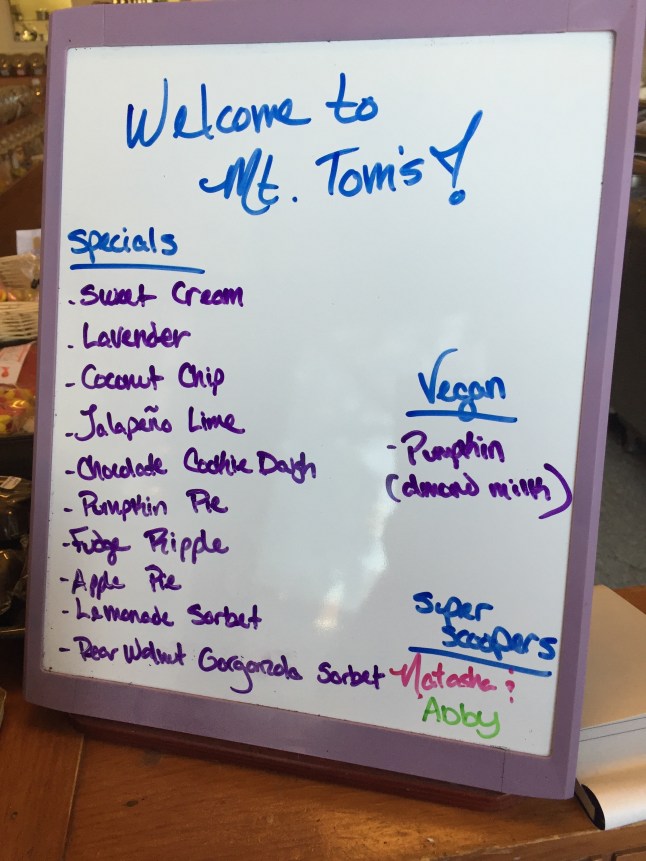 Welcome to
Mt. Tom's!
Specials
. Sweet Cream
. Lavender
- Coconut Chip
- Jalapeño Lime
- Chocolate Cookie Dough
- Pumpkin Pie
- Fudge Ripple
- Apple Pie
- Lemonade Sorbet
- Pear Walnut Gorgonzola Sorbet
Vegan
- Pumpkin
(almond milk)
Super
Scoopers
Natasha &
Abby